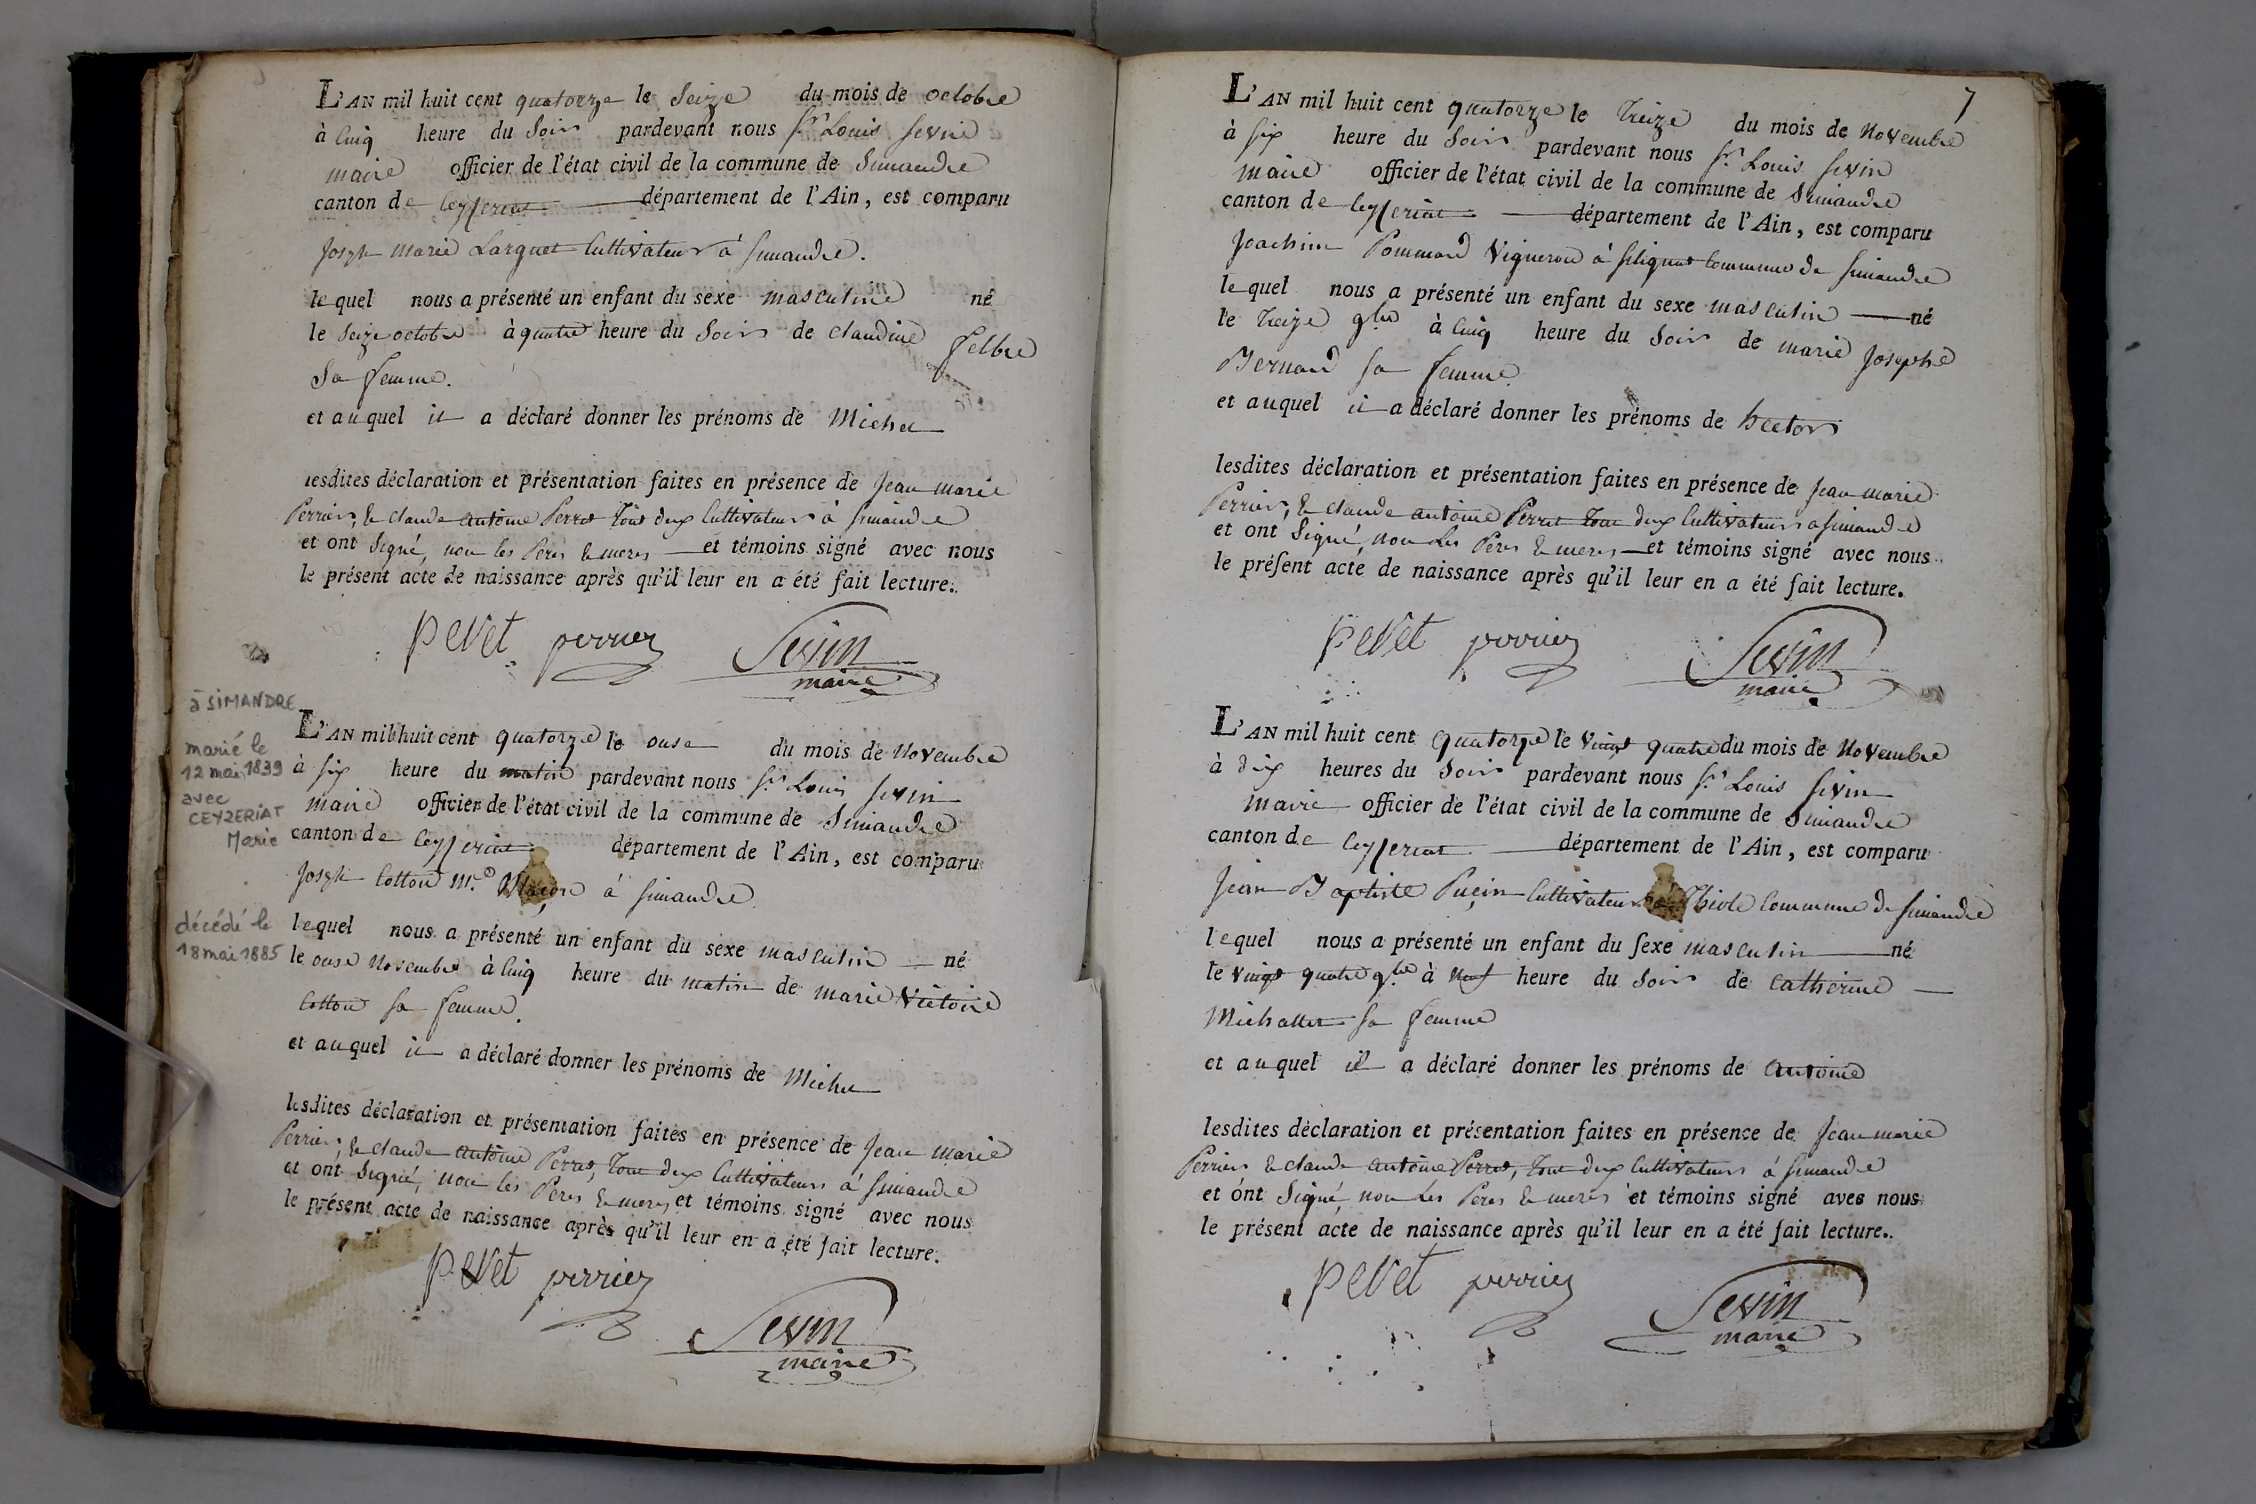 L'AN mil huit cent quatorze le Seize du mois de octobre
à Cinq heure du Soir pardevant nous Sr. Louis Sevin
maire officier de l'état civil de la commune de Simandre
canton de Ceyzeriat département de l'Ain, est comparu
Joseph Marie Larguet Cultivateur à Simandre.
lequel nous a présenté un enfant du sexe masculin né
le Seize octobre à quatre heure du Soir de claudine felbre
Sa femme.
et auquel il a déclaré donner les prénoms de Michel
lesdites déclaration et présentation faites en présence de Jean Marie
Perrier, & claude antoine Perret Tout deux Cultivateurs à Simandre
et ont Signé, non les Peres & meres et témoins signé avec nous
le présent acte de naissance après qu'il leur en a été fait lecture.
pevet perrier Sevin
maire
à SIMANDRE
marié le
12 mai 1839
avec
CEYZERIAT
Marie
décédé le
18 mai 1885
L'AN mil huit cent quatorze le onse du mois de Novembre
à six heure du matin pardevant nous Sr. Louis Sevin
maire officier de l'état civil de la commune de Simandre
canton de Ceyzeriat département de l'Ain, est comparu
Joseph Cotton Md. Maçon à Simandre
lequel nous a présenté un enfant du sexe masculin né
le onse Novembre à Cinq heure du matin de marie Victoire
Cotton sa femme.
et auquel il a déclaré donner les prénoms de Michel
lesdites déclaration et présentation faites en présence de Jean Marie
Perrier, & claude antoine Perret, Tout deux Cultivateurs à Simandre
et ont Signé, non les Peres & meres et témoins signé avec nous
le présent acte de naissance après qu'il leur en a été fait lecture.
pevet perrier
Sevin
maire
7
L'AN mil huit cent quatorze le Treize du mois de Novembre
à six heure du Soir pardevant nous Sr. Louis Sevin
maire officier de l'état civil de la commune de Simandre
canton de Ceyzeriat département de l'Ain, est comparu
Joachim Pommard Vigneron à Silignat Commune de Simandre
lequel nous a présenté un enfant du sexe masculin né
le Treize 9bre à Cinq heure du Soir de marie Josephe
Bernard sa femme.
et auquel il a déclaré donner les prénoms de hector
lesdites déclaration et présentation faites en présence de Jean marie
Perrier, & claude antoine Perret Tout deux Cultivateurs a Simandre
et ont Signé, non les Peres & meres et témoins signé avec nous
le présent acte de naissance après qu'il leur en a été fait lecture.
pevet perrier Sevin
maire
L'AN mil huit cent quatorze le vingt quatre du mois de Novembre
à dix heures du Soir pardevant nous Sr. Louis Sevin
maire officier de l'état civil de la commune de Simandre
canton de Ceyzeriat département de l'Ain, est comparu
Jean Baptiste Puçin Cultivateur à Thiole Commune de Simandre
lequel nous a présenté un enfant du sexe masculin né
le vingt quatre 9bre à neuf heure du Soir de Catherine
Michallet sa femme
et auquel il a déclaré donner les prénoms de antoine
lesdites déclaration et présentation faites en présence de Jean marie
Perrier & claude antoine Perret, Tout deux Cultivateurs à Simandre
et ont Signé, non les Peres & meres et témoins signé avec nous
le présent acte de naissance après qu'il leur en a été fait lecture.
pevet perrier
Sevin
maire